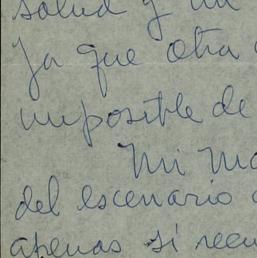 salud y un
ya que otra
imposible de
Mi
del escenario
apenas si